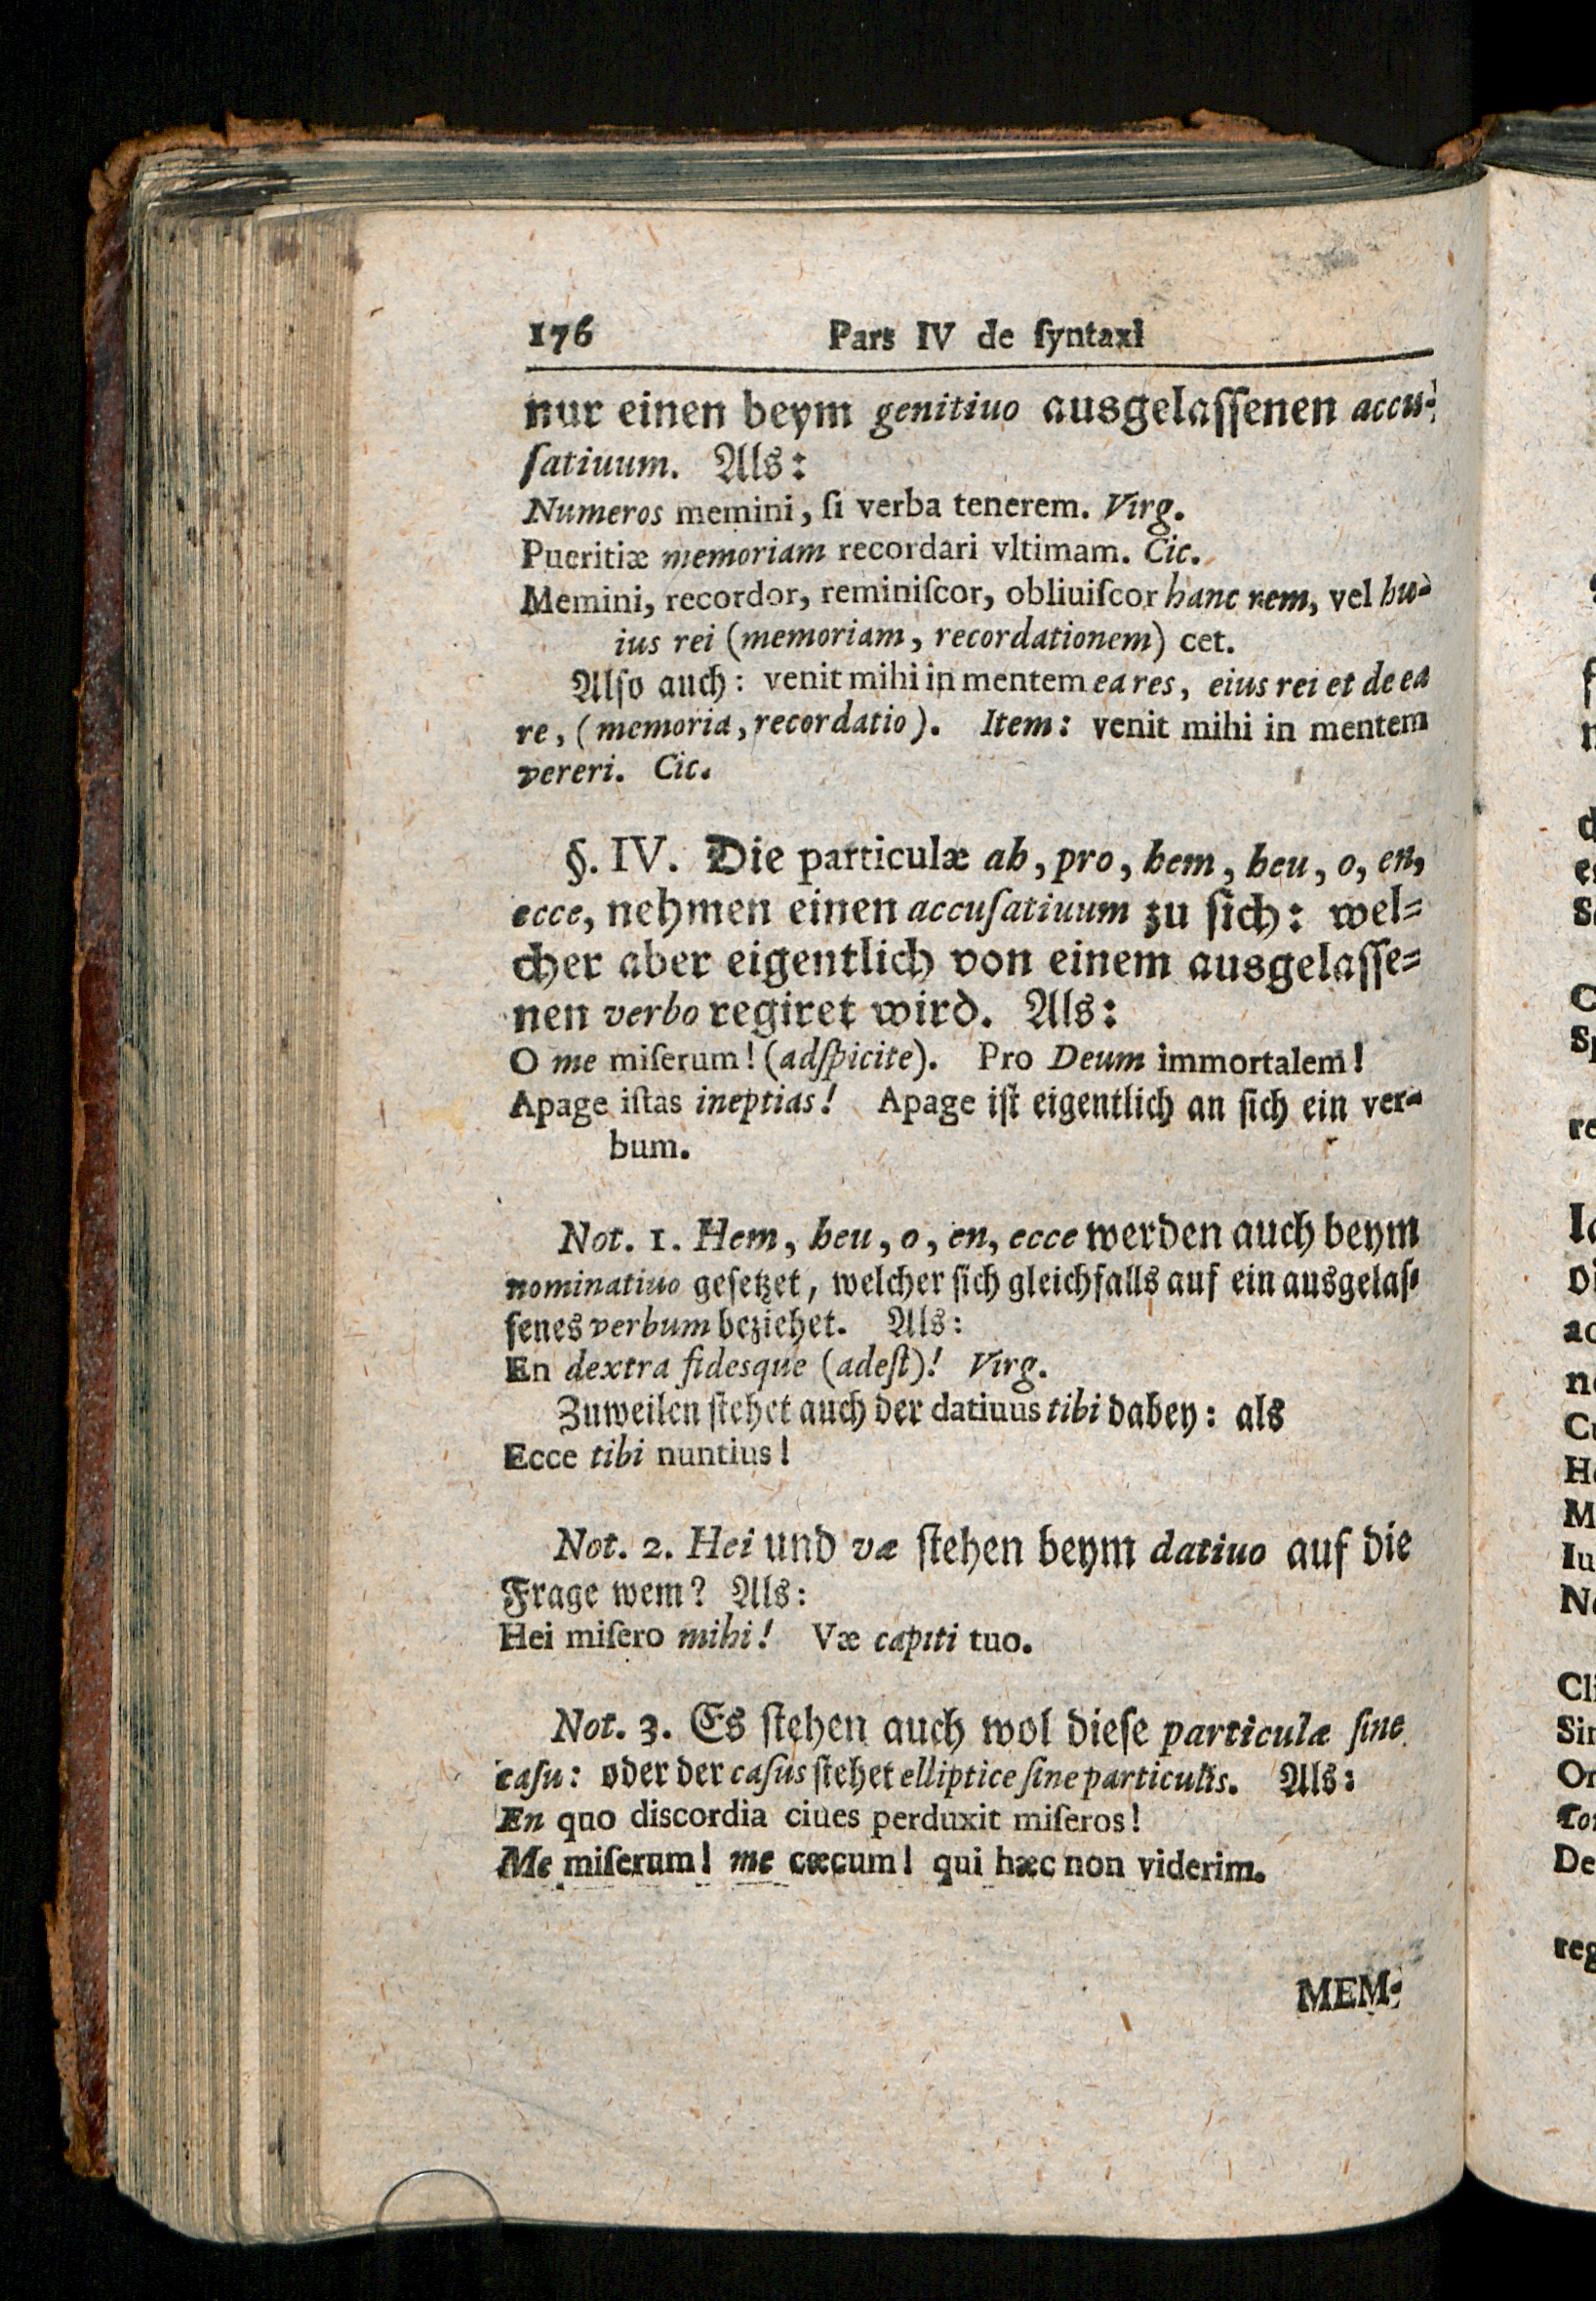 176 Pars IV de ſyntaxi
nur einen beym genitiuo ausgelaſſenen accu-
ſatiuum. Als:
Numeros memini, ſi verba tenerem. Virg.
Pueritiæ memoriam recordari vltimam. Cic.
Memini, recordor, reminiſcor, obliuiſcor hanc rem, vel hu-
ius rei (memoriam, recordationem) cet.
Alſo auch: venit mihi in mentem ea res, eius rei et de ea
re, (memoria, recordatio). Item: venit mihi in mentem
vereri. Cic.
§. IV. Die particulæ ah, pro, hem, heu, o, en,
ecce, nehmen einen accuſatiuum zu ſich: wel-
cher aber eigentlich von einem ausgelaſſe-
nen verbo regiret wird. Als:
O me miſerum! (adſpicite). Pro Deum immortalem!
Apage iſtas ineptias! Apage iſt eigentlich an ſich ein ver-
bum.
Not. 1. Hem, heu, o, en, ecce werden auch beym
nominatiuo geſetzet, welcher ſich gleichfalls auf ein ausgelaſ-
ſenes verbum beziehet. Als:
En dextra fidesque (adeſt)! Virg.
Zuweilen ſtehet auch der datiuus tibi dabey: als
Ecce tibi nuntius!
Not. 2. Hei und væ ſtehen beym datiuo auf die
Frage wem? Als:
Hei miſero mihi! Væ capiti tuo.
Not. 3. Es ſtehen auch wol dieſe particulæ ſine
caſu: oder der caſus ſtehet elliptice ſine particulis. Als:
En quo discordia ciues perduxit miſeros!
Me miſerum! me cæcum! qui hæc non viderim.
MEM-